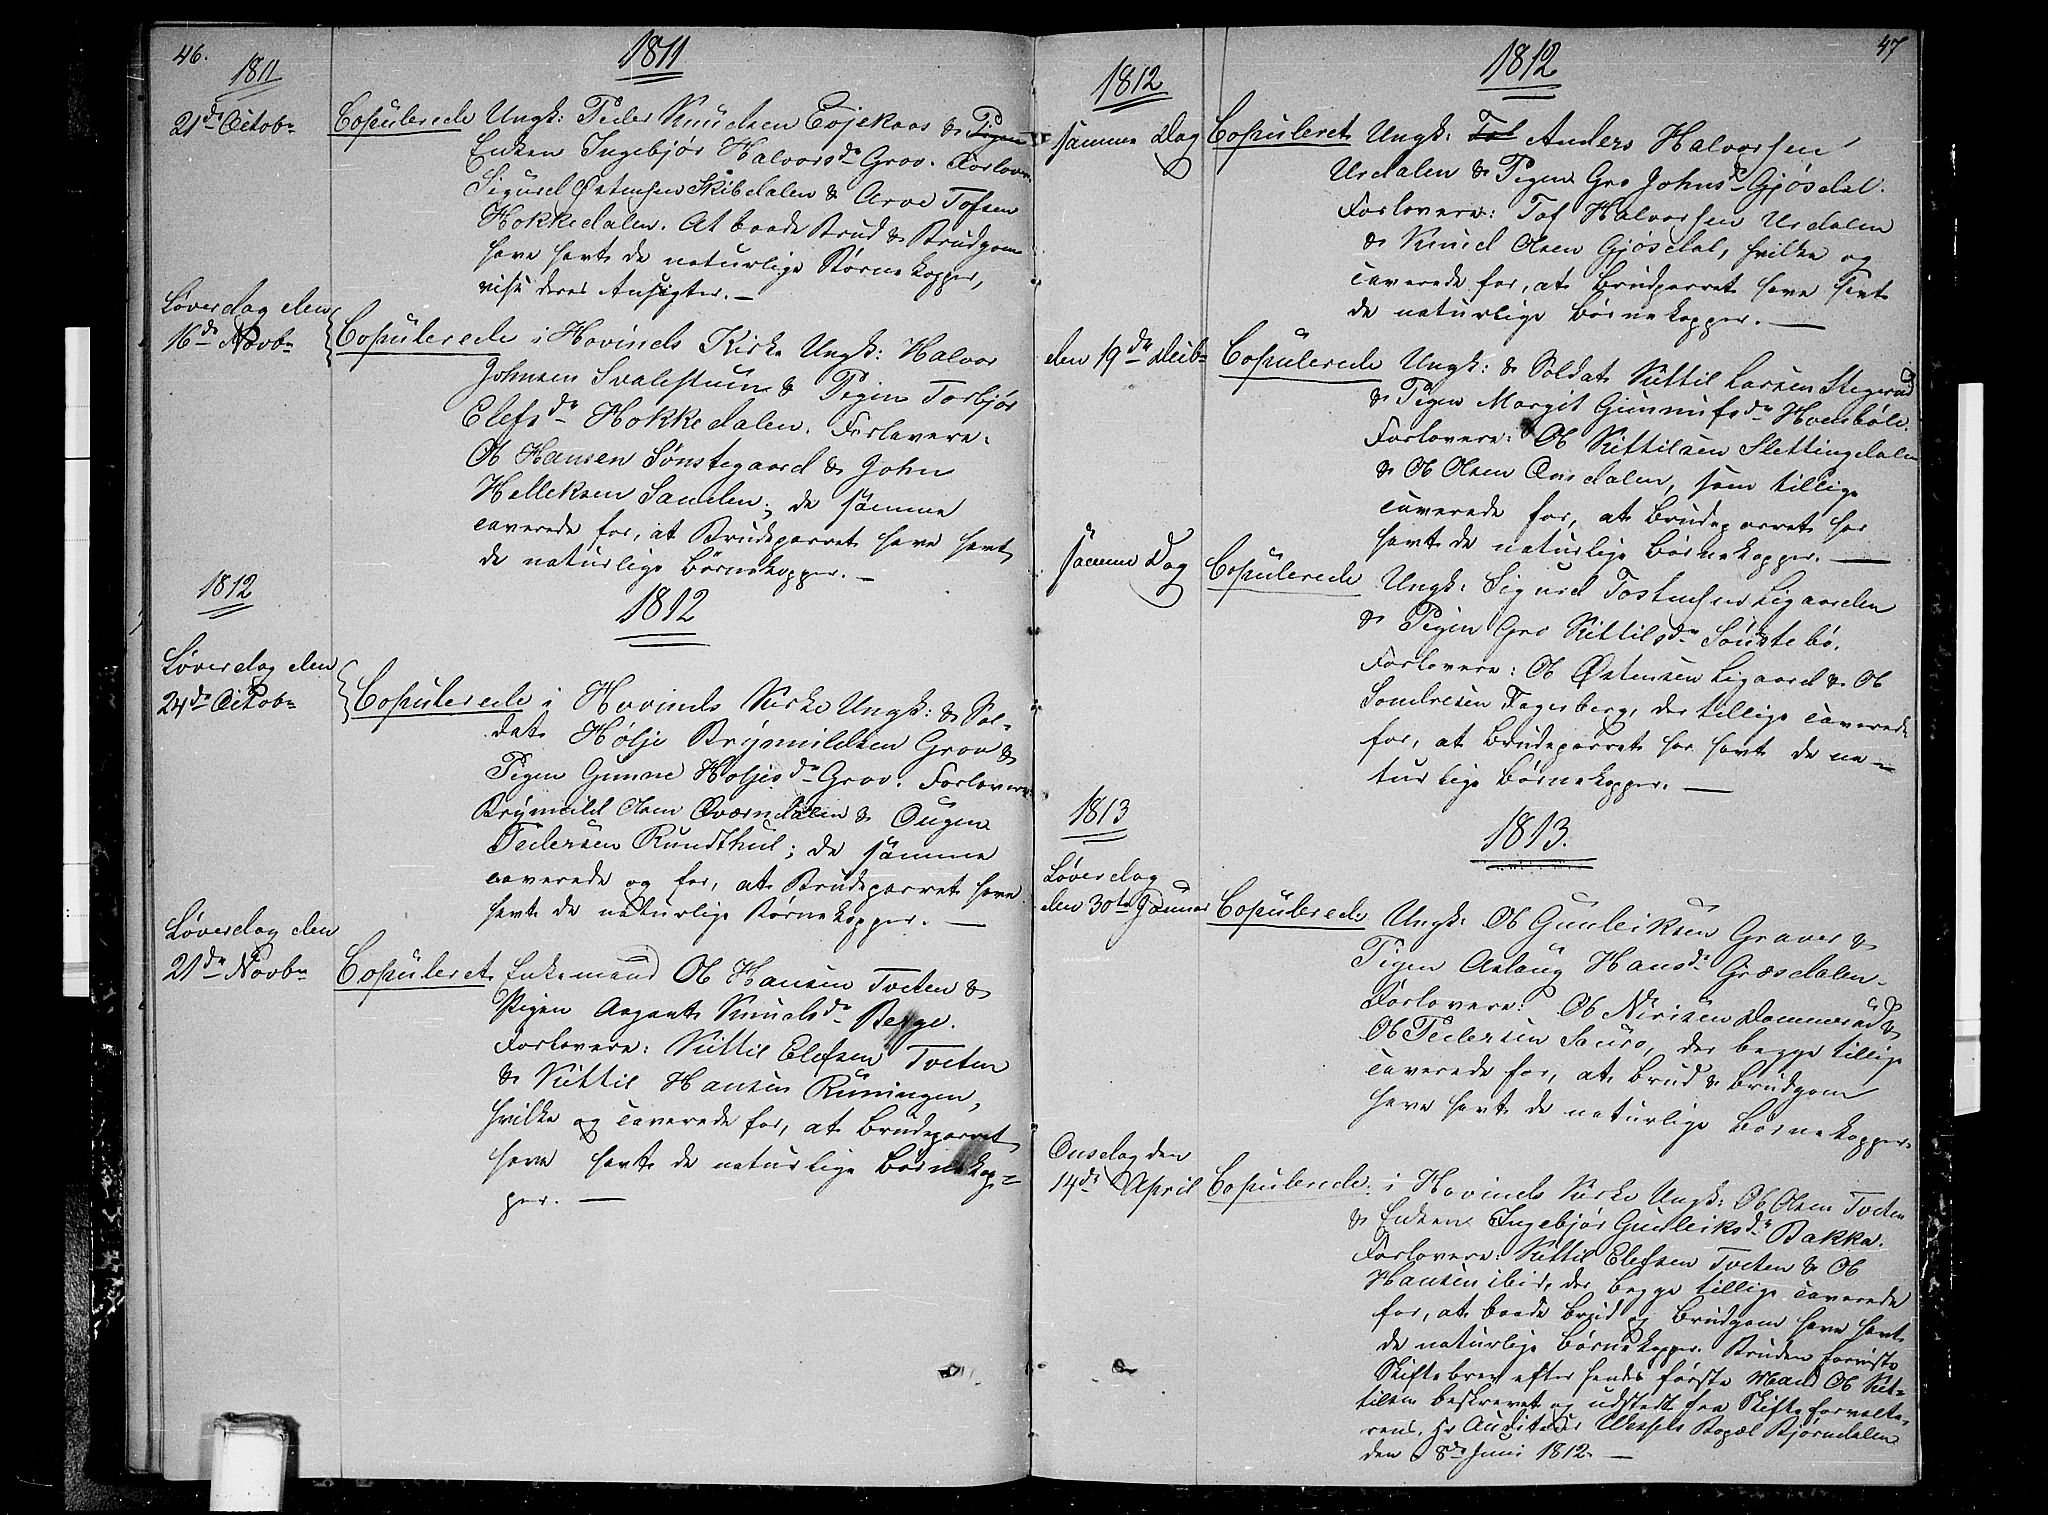 46.
1811
1811
21de Octobr
Copulerede Ungk: Peder Knudsen & Pigen
Enken Ingebjør Halvorsdr Grov. Forlovr
Sigurd Østensen Skibdalen & Arve Tofsen
Hokkedalen. At baade Brud & Brudgom
have havt de naturlige Børnekopper,
vise deres Ansigter. —
Løverdag den
16de Novbr
Copulerede i Hovinds Kirke Ungk: Halvor
Johnsen Svalestuen & Pigen Torbjør
Elefsdr Hokkedalen. Forlovere:
Ob Hansen Sønstegaard & John
Helleksen Sanden; de samme
caverede for, at Brudeparret have havt
de naturlige Børnekopper. —
1812
1812
Løverdag den
24de Octobr
Copulerede i Hovinds Kirke Ungk: & Sol-
dat Hølje Brynnildsen Grov &
Pigen Gunne Holjesdr Grov. Forlovere
Brynnild Olsen Qværndalen & Ougen
Pedersen Rundthul; de samme
caverede og for, at Brudeparret have
havt de naturlige Børnekopper. —
Løverdag den
21de Novbr
Copuleret Enkemand Ob Hansen Tveten &
Pigen Aagaat Knudsdr Berge.
Forlovere: Kittil Elefsen Tveten
& Kittil Hansen Runingen,
hvilke og caverede for, at Brudeparret
have havt de naturlige Børnekop-
per. —
47
1812
1812
samme Dag
Copuleret Ungk: Tof Anders Halvorsen
Urdalen & Pigen Gro Johnsdr Gjøsdal.
Forlovere: Tof Halvorsen Urdalen
& Knud Olsen Gjøsdal, hvilke og
caverede for, at Brudparret have havt
de naturlige Børnekopper. —
den 19de Decbr
Copulerede Ungk: & Soldat Kittil Larsen Stegerud
& Pigen Margit Gunnufsdr Hovdsbøle.
Forlovere: Ob Kittilsen Slettingdalen
& Ob Olsen Qvsdalen, som tillige
caverede for, at Brudeparret har
havt de naturlige Børnekopper. —
samme Dag
Copulerede Ungk: Sigurd Tostensen Ligaarden
& Pigen Gro Kittilsdr Sønstebø.
Forlovere: Ob Østensen Ligaard & Ob
Sondresen Fagerberg, der tillige caverede
for, at Brudeparret har havt de na-
turlige Børnekopper. —
1813
1813.
Løverdag
den 30te Januar
Copulerede Ungk: Ob Gunleiksen Graver &
Pigen Aslaug Hansdr Græsdalen.
Forlovere: Ob Nirisen Dammerud &
Ob Pedersen Sauro, der begge tillige
caverede for, at Brud & Brudgom
have havt de naturlige Børnekopper.
Onsdag den
14de April
Copulerede i Hovinds Kirke Ungk: Ob Olsen Tveten
& Enken Ingebjør Gunleiksdr Bakka.
Forlovere: Kittil Elefsen Tveten & Ob
Hansen ibid, der begge tillige caverede
for, at baade Brud og Brudgom have havt
de naturlige Børnekopper. Bruden foreviste
Skiftebrev efter hendes første Mand Ob Kit-
tilsen beskrevet og udstedt fra Skifteforvalte-
rens, Hr Auditeur Wessels Bopæl Bjørndalen
den 8de Juni 1812. —